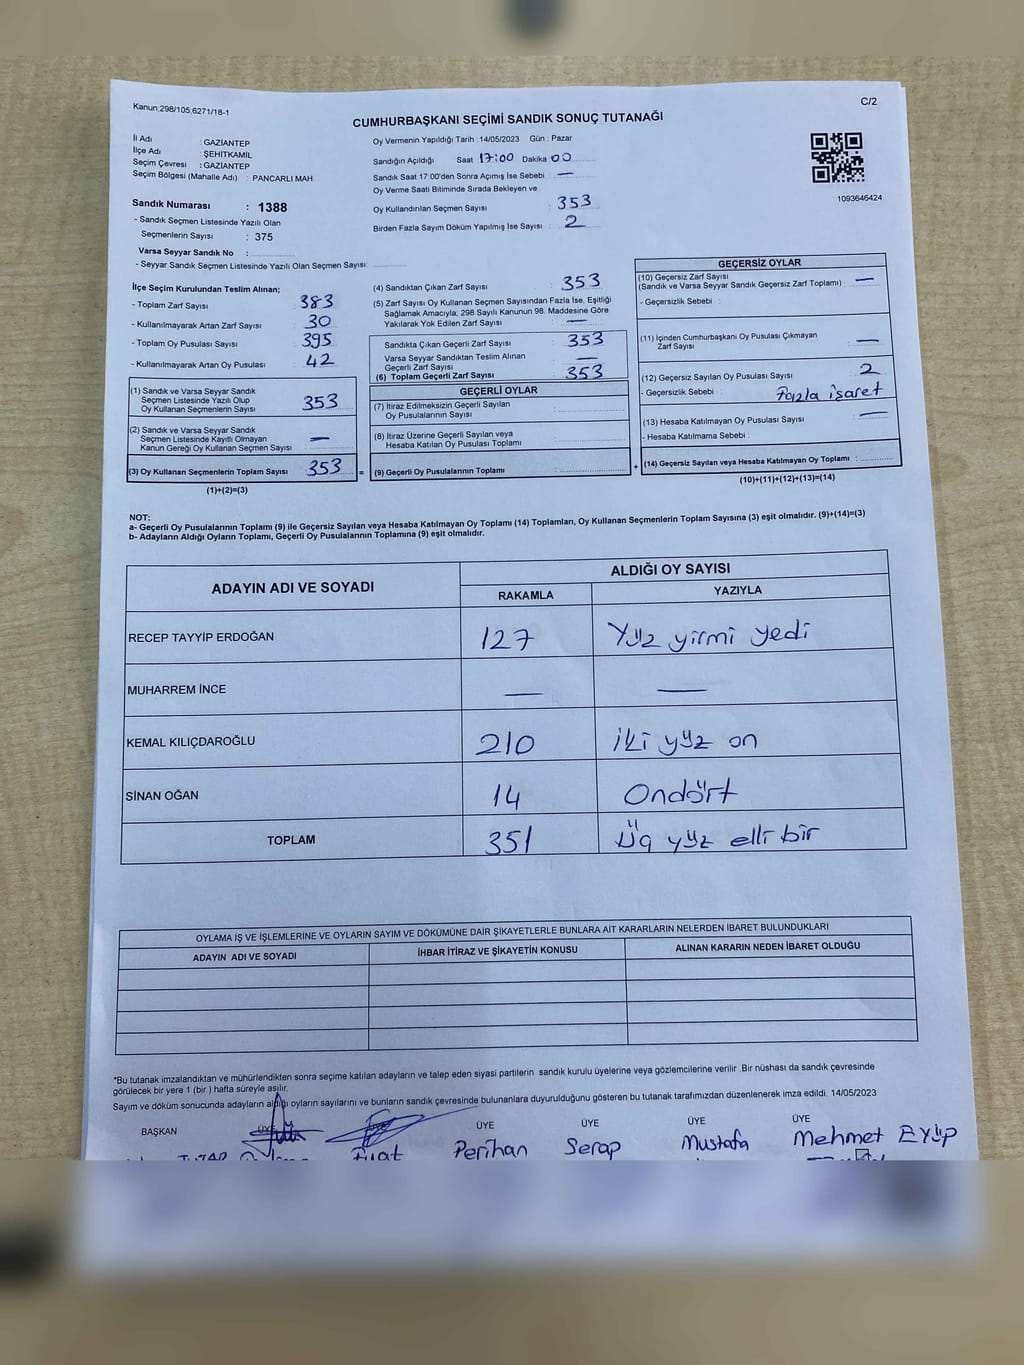 Kanun;298/105,6271/18-1
C/2
CUMHURBAŞKANI SEÇİMİ SANDIK SONUÇ TUTANAĞI
İl Adı : GAZİANTEP
İlçe Adı : ŞEHİTKAMİL
Seçim Çevresi : GAZİANTEP
Seçim Bölgesi (Mahalle Adı) : PANCARLI MAH
Sandık Numarası : 1388
- Sandık Seçmen Listesinde Yazılı Olan
Seçmenlerin Sayısı : 375
Varsa Seyyar Sandık No :
- Seyyar Sandık Seçmen Listesinde Yazılı Olan Seçmen Sayısı:
Oy Vermenin Yapıldığı Tarih : 14/05/2023 Gün : Pazar
Sandığın Açıldığı Saat 17:00 Dakika 00
Sandık Saat 17:00'den Sonra Açımış İse Sebebi : —
Oy Verme Saati Bitiminde Sırada Bekleyen ve
Oy Kullandırılan Seçmen Sayısı : 353
Birden Fazla Sayım Döküm Yapılmış İse Sayısı : 2
1093646424
İlçe Seçim Kurulundan Teslim Alınan;
- Toplam Zarf Sayısı : 383
- Kullanılmayarak Artan Zarf Sayısı : 30
- Toplam Oy Pusulası Sayısı : 395
- Kullanılmayarak Artan Oy Pusulası : 42
(1) Sandık ve Varsa Seyyar Sandık
Seçmen Listesinde Yazılı Olup
Oy Kullanan Seçmenlerin Sayısı : 353
(2) Sandık ve Varsa Seyyar Sandık
Seçmen Listesinde Kayıtlı Olmayan
Kanun Gereği Oy Kullanan Seçmen Sayısı : —
(3) Oy Kullanan Seçmenlerin Toplam Sayısı : 353 =
(1)+(2)=(3)
(4) Sandıktan Çıkan Zarf Sayısı : 353
(5) Zarf Sayısı Oy Kullanan Seçmen Sayısından Fazla İse, Eşitliği
Sağlamak Amacıyla; 298 Sayılı Kanunun 98. Maddesine Göre
Yakılarak Yok Edilen Zarf Sayısı : —
Sandıkta Çıkan Geçerli Zarf Sayısı : 353
Varsa Seyyar Sandıktan Teslim Alınan
Geçerli Zarf Sayısı : —
(6) Toplam Geçerli Zarf Sayısı : 353
GEÇERLİ OYLAR
(7) İtiraz Edilmeksizin Geçerli Sayılan
Oy Pusulalarının Sayısı :
(8) İtiraz Üzerine Geçerli Sayılan veya
Hesaba Katılan Oy Pusulası Toplamı :
(9) Geçerli Oy Pusulalarının Toplamı : +
GEÇERSİZ OYLAR
(10) Geçersiz Zarf Sayısı
(Sandık ve Varsa Seyyar Sandık Geçersiz Zarf Toplamı) : —
- Geçersizlik Sebebi :
(11) İçinden Cumhurbaşkanı Oy Pusulası Çıkmayan
Zarf Sayısı : —
(12) Geçersiz Sayılan Oy Pusulası Sayısı : 2
- Geçersizlik Sebebi : Fazla işaret
(13) Hesaba Katılmayan Oy Pusulası Sayısı : —
- Hesaba Katılmama Sebebi :
(14) Geçersiz Sayılan veya Hesaba Katılmayan Oy Toplamı :
(10)+(11)+(12)+(13)=(14)
NOT:
a- Geçerli Oy Pusulalarının Toplamı (9) ile Geçersiz Sayılan veya Hesaba Katılmayan Oy Toplamı (14) Toplamları, Oy Kullanan Seçmenlerin Toplam Sayısına (3) eşit olmalıdır. (9)+(14)=(3)
b- Adayların Aldığı Oyların Toplamı, Geçerli Oy Pusulalarının Toplamına (9) eşit olmalıdır.
ADAYIN ADI VE SOYADI ALDIĞI OY SAYISI
RAKAMLA YAZIYLA
RECEP TAYYİP ERDOĞAN 127 Yüz yirmi yedi
MUHARREM İNCE — —
KEMAL KILIÇDAROĞLU 210 iki yüz on
SİNAN OĞAN 14 Ondört
TOPLAM 351 Üç yüz elli bir
OYLAMA İŞ VE İŞLEMLERİNE VE OYLARIN SAYIM VE DÖKÜMÜNE DAİR ŞİKAYETLERLE BUNLARA AİT KARARLARIN NELERDEN İBARET BULUNDUKLARI
ADAYIN ADI VE SOYADI İHBAR İTİRAZ VE ŞİKAYETİN KONUSU ALINAN KARARIN NEDEN İBARET OLDUĞU
*Bu tutanak imzalandıktan ve mühürlendikten sonra seçime katılan adayların ve talep eden siyasi partilerin sandık kurulu üyelerine veya gözlemcilerine verilir .Bir nüshası da sandık çevresinde
görülecek bir yere 1 (bir ) hafta süreyle asılır.
Sayım ve döküm sonucunda adayların aldığı oyların sayılarını ve bunların sandık çevresinde bulunanlara duyurulduğunu gösteren bu tutanak tarafımızdan düzenlenerek imza edildi. 14/05/2023
BAŞKAN ÜYE ÜYE ÜYE ÜYE ÜYE ÜYE
Fuat Perihan Serap Mustafa Mehmet EYÜP